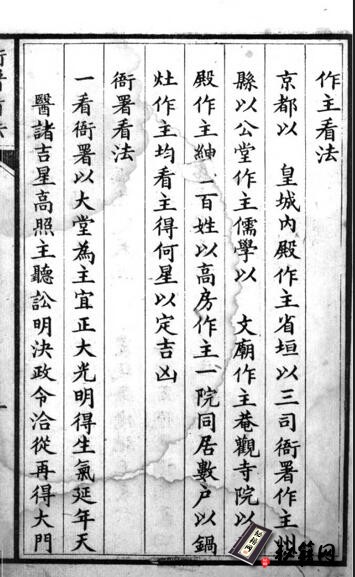 作主看法
京都以　皇城內殿作主省垣以三司衙署作主州
縣以公堂作主儒學以　文廟作主菴觀寺院以
殿作主紳百姓以高房作主一院同居數戶以鍋
灶作主均看主得何星以定吉凶
衙署看法
一看衙署以大堂為主宜正大光明得生氣延年天
醫諸吉星高照主聽訟明決政令洽從再得大門
秘籍网